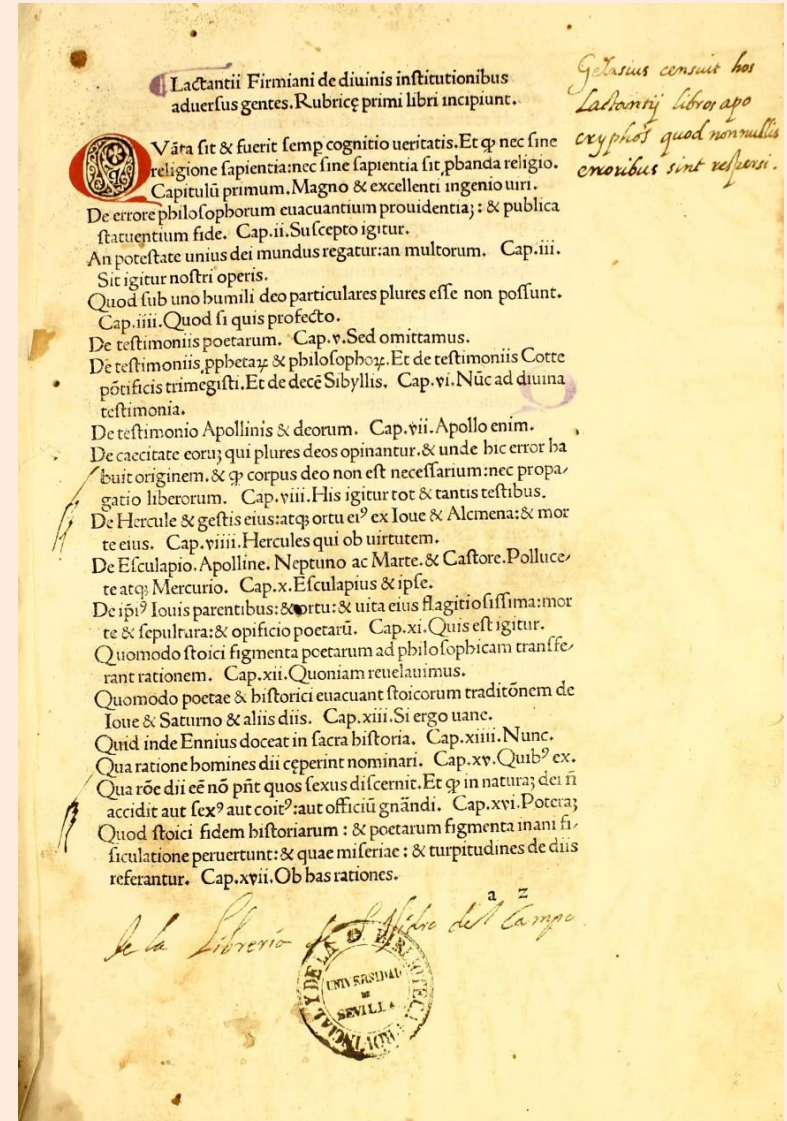 ¶ Lactantii Firmiani de diuinis institutionibus
aduersus gentes. Rubricę primi libri incipiunt.
QVāta sit & fuerit semp cognitio ueritatis. Et ꝙ nec sine
religione sapientia: nec sine sapientia sit ꝓbanda religio.
Capitulū primum. Magno & excellenti ingenio uiri.
De errore philosophorum euacuantium prouidentiaꝫ: & publica
statuentium fide. Cap. ii. Suscepto igitur.
An potestate unius dei mundus regatur: an multorum. Cap. iii.
Sit igitur nostri operis.
Quod sub uno humili deo particulares plures esse non possunt.
Cap. iiii. Quod si quis profecto.
De testimoniis poetarum. Cap. v. Sed omittamus.
De testimoniis ꝓphetaꝝ & philosophoꝝ. Et de testimoniis Cotte
pōtificis trimegisti. Et de decē Sibyllis. Cap. vi. Nūc ad diuina
testimonia.
De testimonio Apollinis & deorum. Cap. vii. Apollo enim.
De caecitate eoruꝫ qui plures deos opinantur. & unde hic error ha
buit originem. & ꝙ corpus deo non est necessarium: nec propa/
gatio liberorum. Cap. viii. His igitur tot & tantis testibus.
De Hercule & gestis eius: atqꝫ ortu eiꝰ ex Ioue & Alcmena: & mor
te eius. Cap. viiii. Hercules qui ob uirtutem.
De Esculapio. Apolline. Neptuno ac Marte. & Castore. Polluce/
te atqꝫ Mercurio. Cap. x. Esculapius & ipse.
De ip̄iꝰ Iouis parentibus: & ortu: & uita eius flagitiosissima: mor
te & sepultura: & opificio poetarū. Cap. xi. Quis est igitur.
Quomodo stoici figmenta poetarum ad philosophicam transfe/
rant rationem. Cap. xii. Quoniam reuelauimus.
Quomodo poetae & historici euacuant stoicorum traditōnem de
Ioue & Saturno & aliis diis. Cap. xiii. Si ergo uane.
Quid inde Ennius doceat in sacra historia. Cap. xiiii. Nunc.
Qua ratione homines dii cęperint nominari. Cap. xv. Quibꝰ ex.
Qua rōe dii eē nō pn̄t quos sexus discernit. Et ꝙ in naturaꝫ dei n̄
accidit aut sexꝰ aut coitꝰ: aut officiū gnādi. Cap. xvi. Poteraꝫ
Quod stoici fidem historiarum: & poetarum figmenta inani fi/
siculatione peruertunt: & quae miseriae: & turpitudines de diis
referantur. Cap. xvii. Ob has rationes.
a z
Gelasius censuit hos
Lactantij libros apo
cryphos quod nonnullis
erroribus sint respersi.
de la Libreria de S. Isidro del Campo
BIBLIOTECA PROVINCIAL Y DE LA
UNIVERSIDAD
DE
SEVILLA